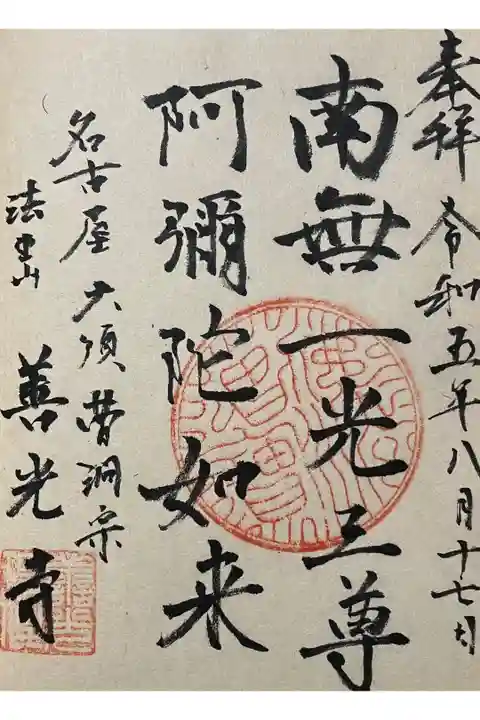 奉拝 令和五年八月十七日
南無一光三尊
阿彌陀如来
名古屋大須曹洞宗
善光寺